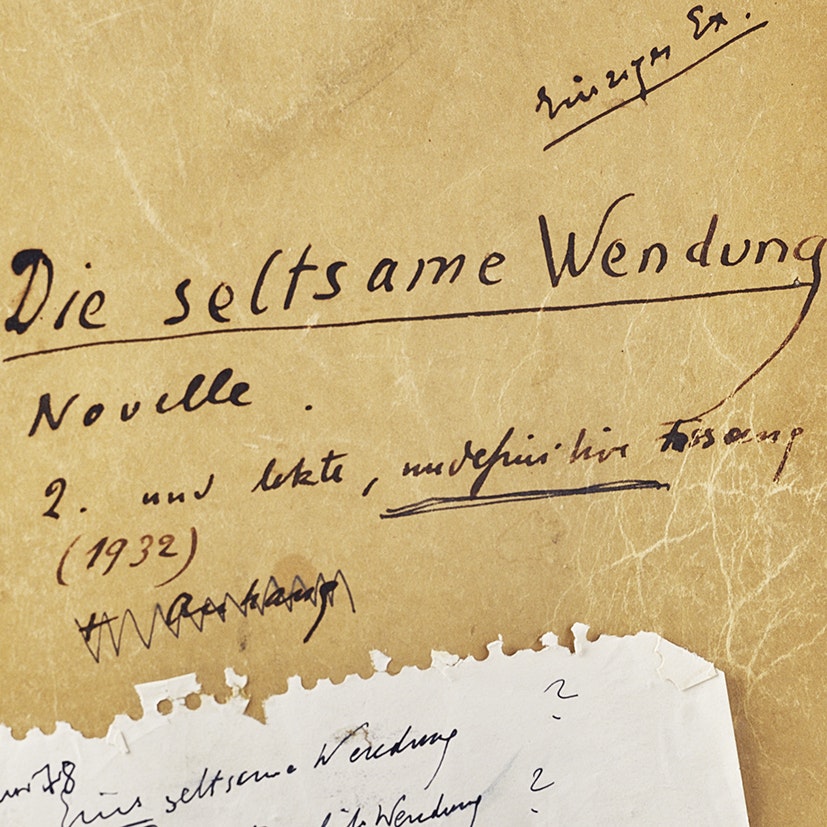 Einziges Ex.
Die seltsame Wendung
Novelle.
2. und letzte, undefinitive Fassung
(1932)
+ Anhang
78
Eine seltsame Wendung ?
Wendung ?